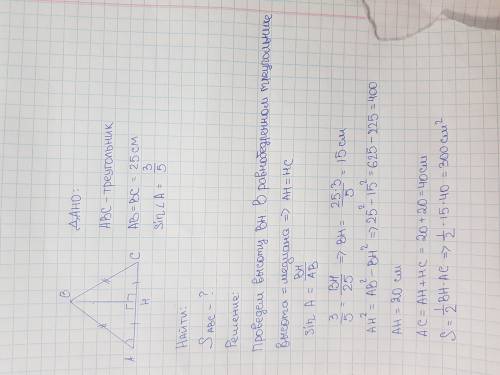 B
A
H
C
ДАНО:
ABC - треугольник
AB = BC = 25 см
sin∠A = 3/5
Найти:
S ABC - ?
Решение:
Проведем высоту BH в равнобедренном треугольнике
высота = медиана => AH = HC
sin A = BH/AB
3/5 = BH/25 => BH = 25·3/5 = 15 см
AH² = AB² - BH² => 25² - 15² = 625 - 225 = 400
AH = 20 см
AC = AH + HC = 20 + 20 = 40 см
S = 1/2 BH·AC => 1/2 ·15·40 = 300 см²